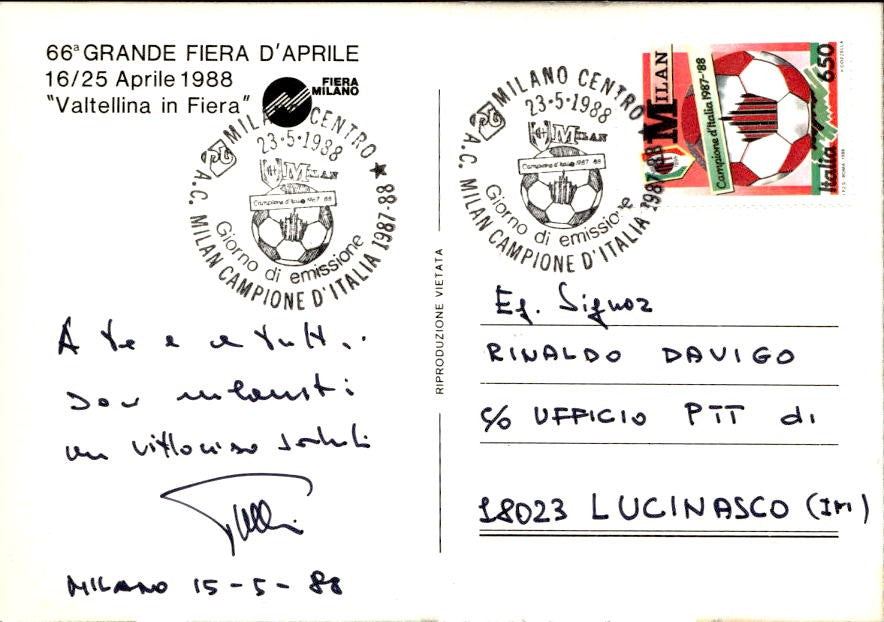 66ª GRANDE FIERA D'APRILE
16/25 Aprile 1988
"Valtellina in Fiera"
FIERA
MILANO
MILANO CENTRO
23-5-1988
MILAN
Campione d'Italia 1987-88
Giorno di emissione
A.C. MILAN CAMPIONE D'ITALIA 1987-88
MILANO CENTRO
23-5-1988
MILAN
Campione d'Italia 1987-88
Giorno di emissione
A.C. MILAN CAMPIONE D'ITALIA 1987-88
MILAN
Campione d'Italia 1987-'88
Italia 650
I.P.Z.S. ROMA 1988
RIPRODUZIONE VIETATA
A te e a tutti
un vittorioso
MILANO 15-5-88
Eg. Signor
RINALDO DAVIGO
c/o UFFICIO PTT di
18023 LUCINASCO (IM)